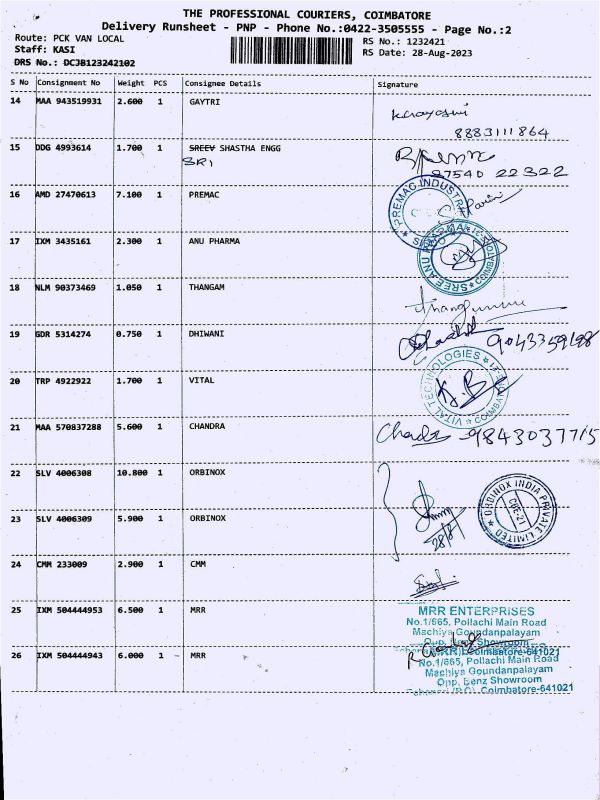 THE PROFESSIONAL COURIERS, COIMBATORE
Delivery Runsheet - PNP - Phone No.:0422-3505555 - Page No.:2
Route: PCK VAN LOCAL
RS No.: 1232421
Staff: KASI
RS Date: 28-Aug-2023
DRS No.: DCJB123242102
S No Consignment No Weight PCS Consignee Details Signature
14 MAA 943519931 2.600 1 GAYTRI
8883111864
15 DDG 4993614 1.700 1 SREEV SHASTHA ENGG
SRI
97540 22322
16 AMD 27470613 7.100 1 PREMAC
PREMAC INDUSTR
17 IXM 3435161 2.300 1 ANU PHARMA
SREE ANU PHARMA COIMBA
18 NLM 90373469 1.050 1 THANGAM
19 GDR 5314274 0.750 1 DHIWANI
9043359198
20 TRP 4922922 1.700 1 VITAL
VITAL TECHNOLOGIES COIMBA
21 MAA 570837288 5.600 1 CHANDRA
9843037715
22 SLV 4006308 10.800 1 ORBINOX
ORBINOX INDIA PRIVATE LIMITED
CBE-21
28/8
23 SLV 4006309 5.900 1 ORBINOX
24 CMM 233009 2.900 1 CMM
25 IXM 504444953 6.500 1 MRR
MRR ENTERPRISES
No.1/665, Pollachi Main Road
Machiya Goundanpalayam
Opp. Benz Showroom
Coimbatore-641021
26 IXM 504444943 6.000 1 MRR
No.1/665, Pollachi Main Road
Machiya Goundanpalayam
Opp. Benz Showroom
Coimbatore-641021